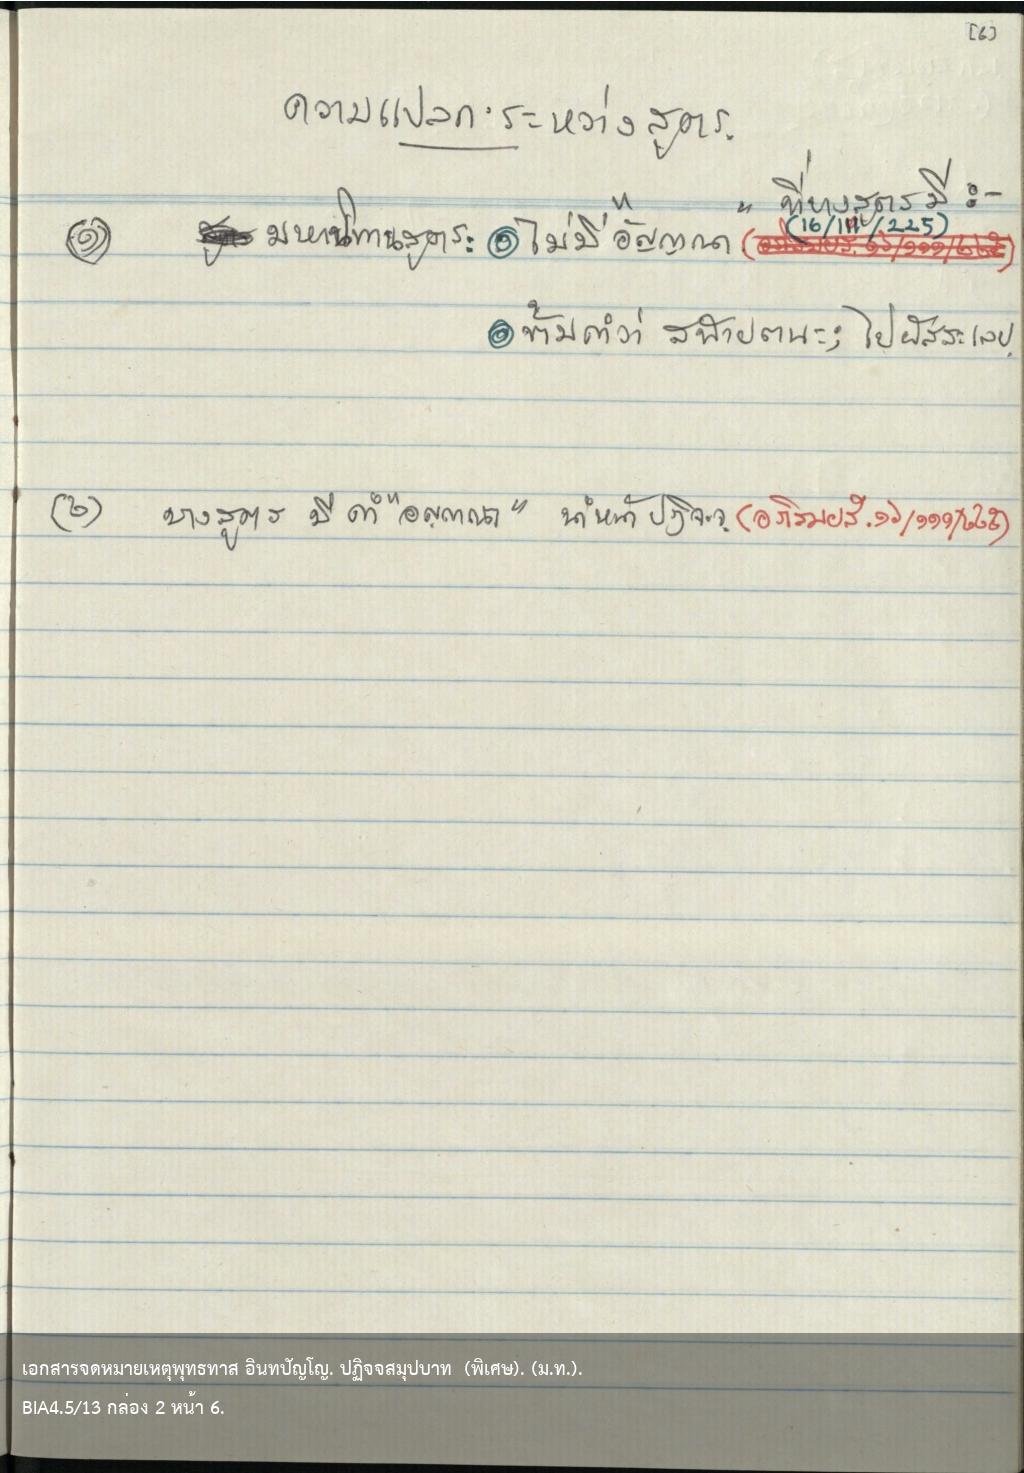 [6]
ความแปลกระหว่างสูตร.
ที่บางสูตรมี :-
(16/111/225)
(๑) มหานิทานสูตร: ๑ ไม่มี "อัญฺญตฺร" (อภิสมยสํ. ๑๖/๑๑๑/๒๒๕)
๑ ข้ามคำว่า สฬายตนะ; ไปผัสสะเลย.
(๒) บางสูตร มี คำ "อญฺญตฺร" นำหน้า ปฏิจจ. (อภิสมยสํ. ๑๖/๑๑๑/๒๒๕)
เอกสารจดหมายเหตุพุทธทาส อินทปัญโญ. ปฏิจจสมุปบาท (พิเศษ). (ม.ท.).
BIA4.5/13 กล่อง 2 หน้า 6.